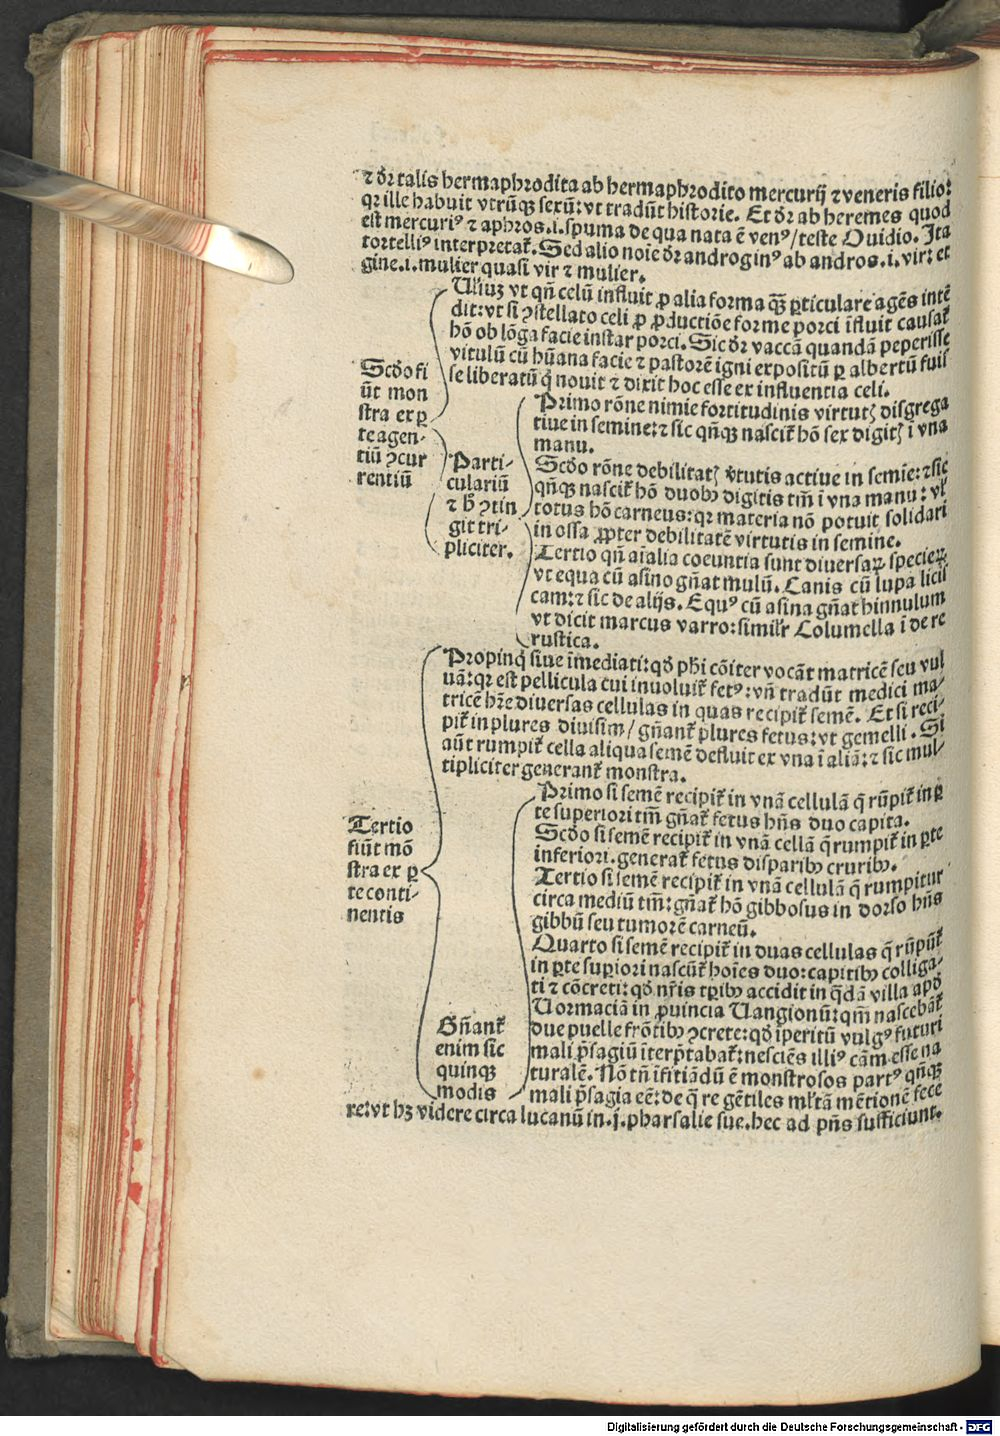 ⁊ dr̄ talis hermaphrodita ab hermaphrodito mercurij ⁊ veneris filio:
qꝛ ille habuit vtrūqꝫ sexū: vt tradūt historie. Et dr̄ ab heremes quod
est mercuriꝰ ⁊ aphros .i. spuma de qua nata ē venꝰ/ teste Ouidio. Ita
tortelliꝰ interpretat̄. Sed alio noīe dr̄ androginꝰ ab andros .i. vir: et
gine .i. mulier quasi vir ⁊ mulier.
Scd̓o fi
ūt mon
stra ex ꝑ
te agen-
tiū ꝯcur
rentiū
Uliuꝫ vt qn̄ celū influit ꝓ alia forma qꝫ̄ ꝑticulare agēs intē
dit: vt si ꝯstellato celi ꝓ ꝓductiōe forme porci īfluit causat̄
hō ob lōga facie instar porci. Sic dr̄ vaccā quandā peperisse
vitulū cū hūana facie ⁊ pastorē igni expositū ꝑ albertū fuis
se liberatū q̓ nouit ⁊ dixit hoc esse ex influentia celi.
Parti-
culariū
⁊ h̓ ꝯtin
git tri-
pliciter.
Primo rōne nimie fortitudinis virtutꝭ disgrega
tiue in semine: ⁊ sic qn̄qꝫ nascit̄ hō sex digitꝭ ī vna
manu.
Scd̓o rōne debilitatꝭ v̓tutis actiue in semīe: ⁊ sic
qn̄qꝫ nascit̄ hō duobꝫ digitis tm̄ ī vna manu: vl̓
totus hō carneus: qꝛ materia nō potuit solidari
in ossa ꝓpter debilitatē virtutis in semine.
Tertio qn̄ aīalia coeuntia sunt diuersaꝝ specieꝝ
vt equa cū asino gn̄at mulū. Canis cū lupa licis
cam: ⁊ sic de alijs. Equꝰ cū asina gn̄at hinnulum
vt dicit marcus varro: simil̓r Columella ī de re
rustica.
Tertio
fiūt mō
stra ex ꝑ
te conti-
nentis
Propinq̓ siue īmediati: qd̓ phi cōiter vocāt matricē seu vul
uā: qꝛ est pellicula cui inuoluit̄ fetꝰ: vn̄ tradūt medici ma-
tricē hr̄e diuersas cellulas in quas recipit̄ semē. Et si reci-
pit̄ in plures diuisim/ gn̄ant̄ plures fetus: vt gemelli. Si
aūt rumpit̄ cella aliqua semē defluit ex vna ī aliā: ⁊ sic mul-
tipliciter generant̄ monstra.
Gn̄ant̄
enim sic
quinqꝫ
modis
Primo si semē recipit̄ in vnā cellulā q̄ rūpit̄ in ꝑ
te superiori tm̄ gn̄at̄ fetus hn̄s duo capita.
Scd̓o si semē recipit̄ in vnā cellā q̄ rumpit̄ in ꝑte
inferiori. generat̄ fetus disparibꝫ cruribꝫ.
Tertio si semē recipit̄ in vnā cellulā q̄ rumpitur
circa mediū tm̄: gn̄at̄ hō gibbosus in dorso hn̄s
gibbū seu tumorē carneū.
Quarto si semē recipit̄ in duas cellulas q̄ rūpūt̄
in ꝑte suꝑiori nascūt̄ hoīes duo: capitibꝫ colliga-
ti ⁊ cōcreti: qd̓ nr̄is tꝑibꝫ accidit in q̄dā villa apd̓
Uormaciā in ꝓuincia Uangionū: qm̄ nascebāt̄
due puelle frōtibꝫ ꝯcrete: qd̓ īperitū vulgꝰ futuri
mali p̄sagiū īterp̄tabat̄: nesciēs illiꝰ cām esse na
turalē. Nō tn̄ īfitiādū ē monstrosos partꝰ qn̄qꝫ
mali p̄sagia eē: de q̄ re gētiles ml̓tā mētionē fece
re: vt hꝫ videre circa lucanū in .j. pharsalie sue. hec ad pn̄s sufficiunt.
Digitalisierung gefördert durch die Deutsche Forschungsgemeinschaft - DFG